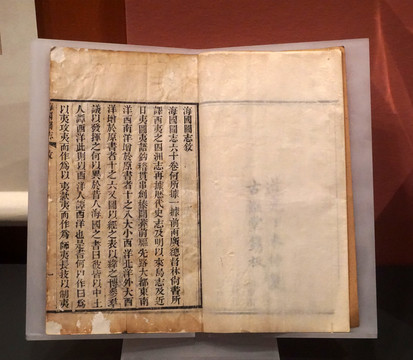 海國圖志敘
海國圖志六十卷何所據一據前兩廣總督林尚書所
譯西夷之四洲志再據歷代史志及明以來島志及近
日夷圖夷語鉤稽貫串創榛闢莽前驅先路大都東南
洋西南洋增於原書者十之八大小西洋北洋外大西
洋增於原書者十之六又圖以經之表以緯之博參羣
議以發揮之何以異於昔人海圖之書曰彼皆以中土
人譚西洋此則以西洋人譚西洋也是書何以作曰為
以夷攻夷而作為以夷款夷而作為師夷長技以制夷
國圖志 敘